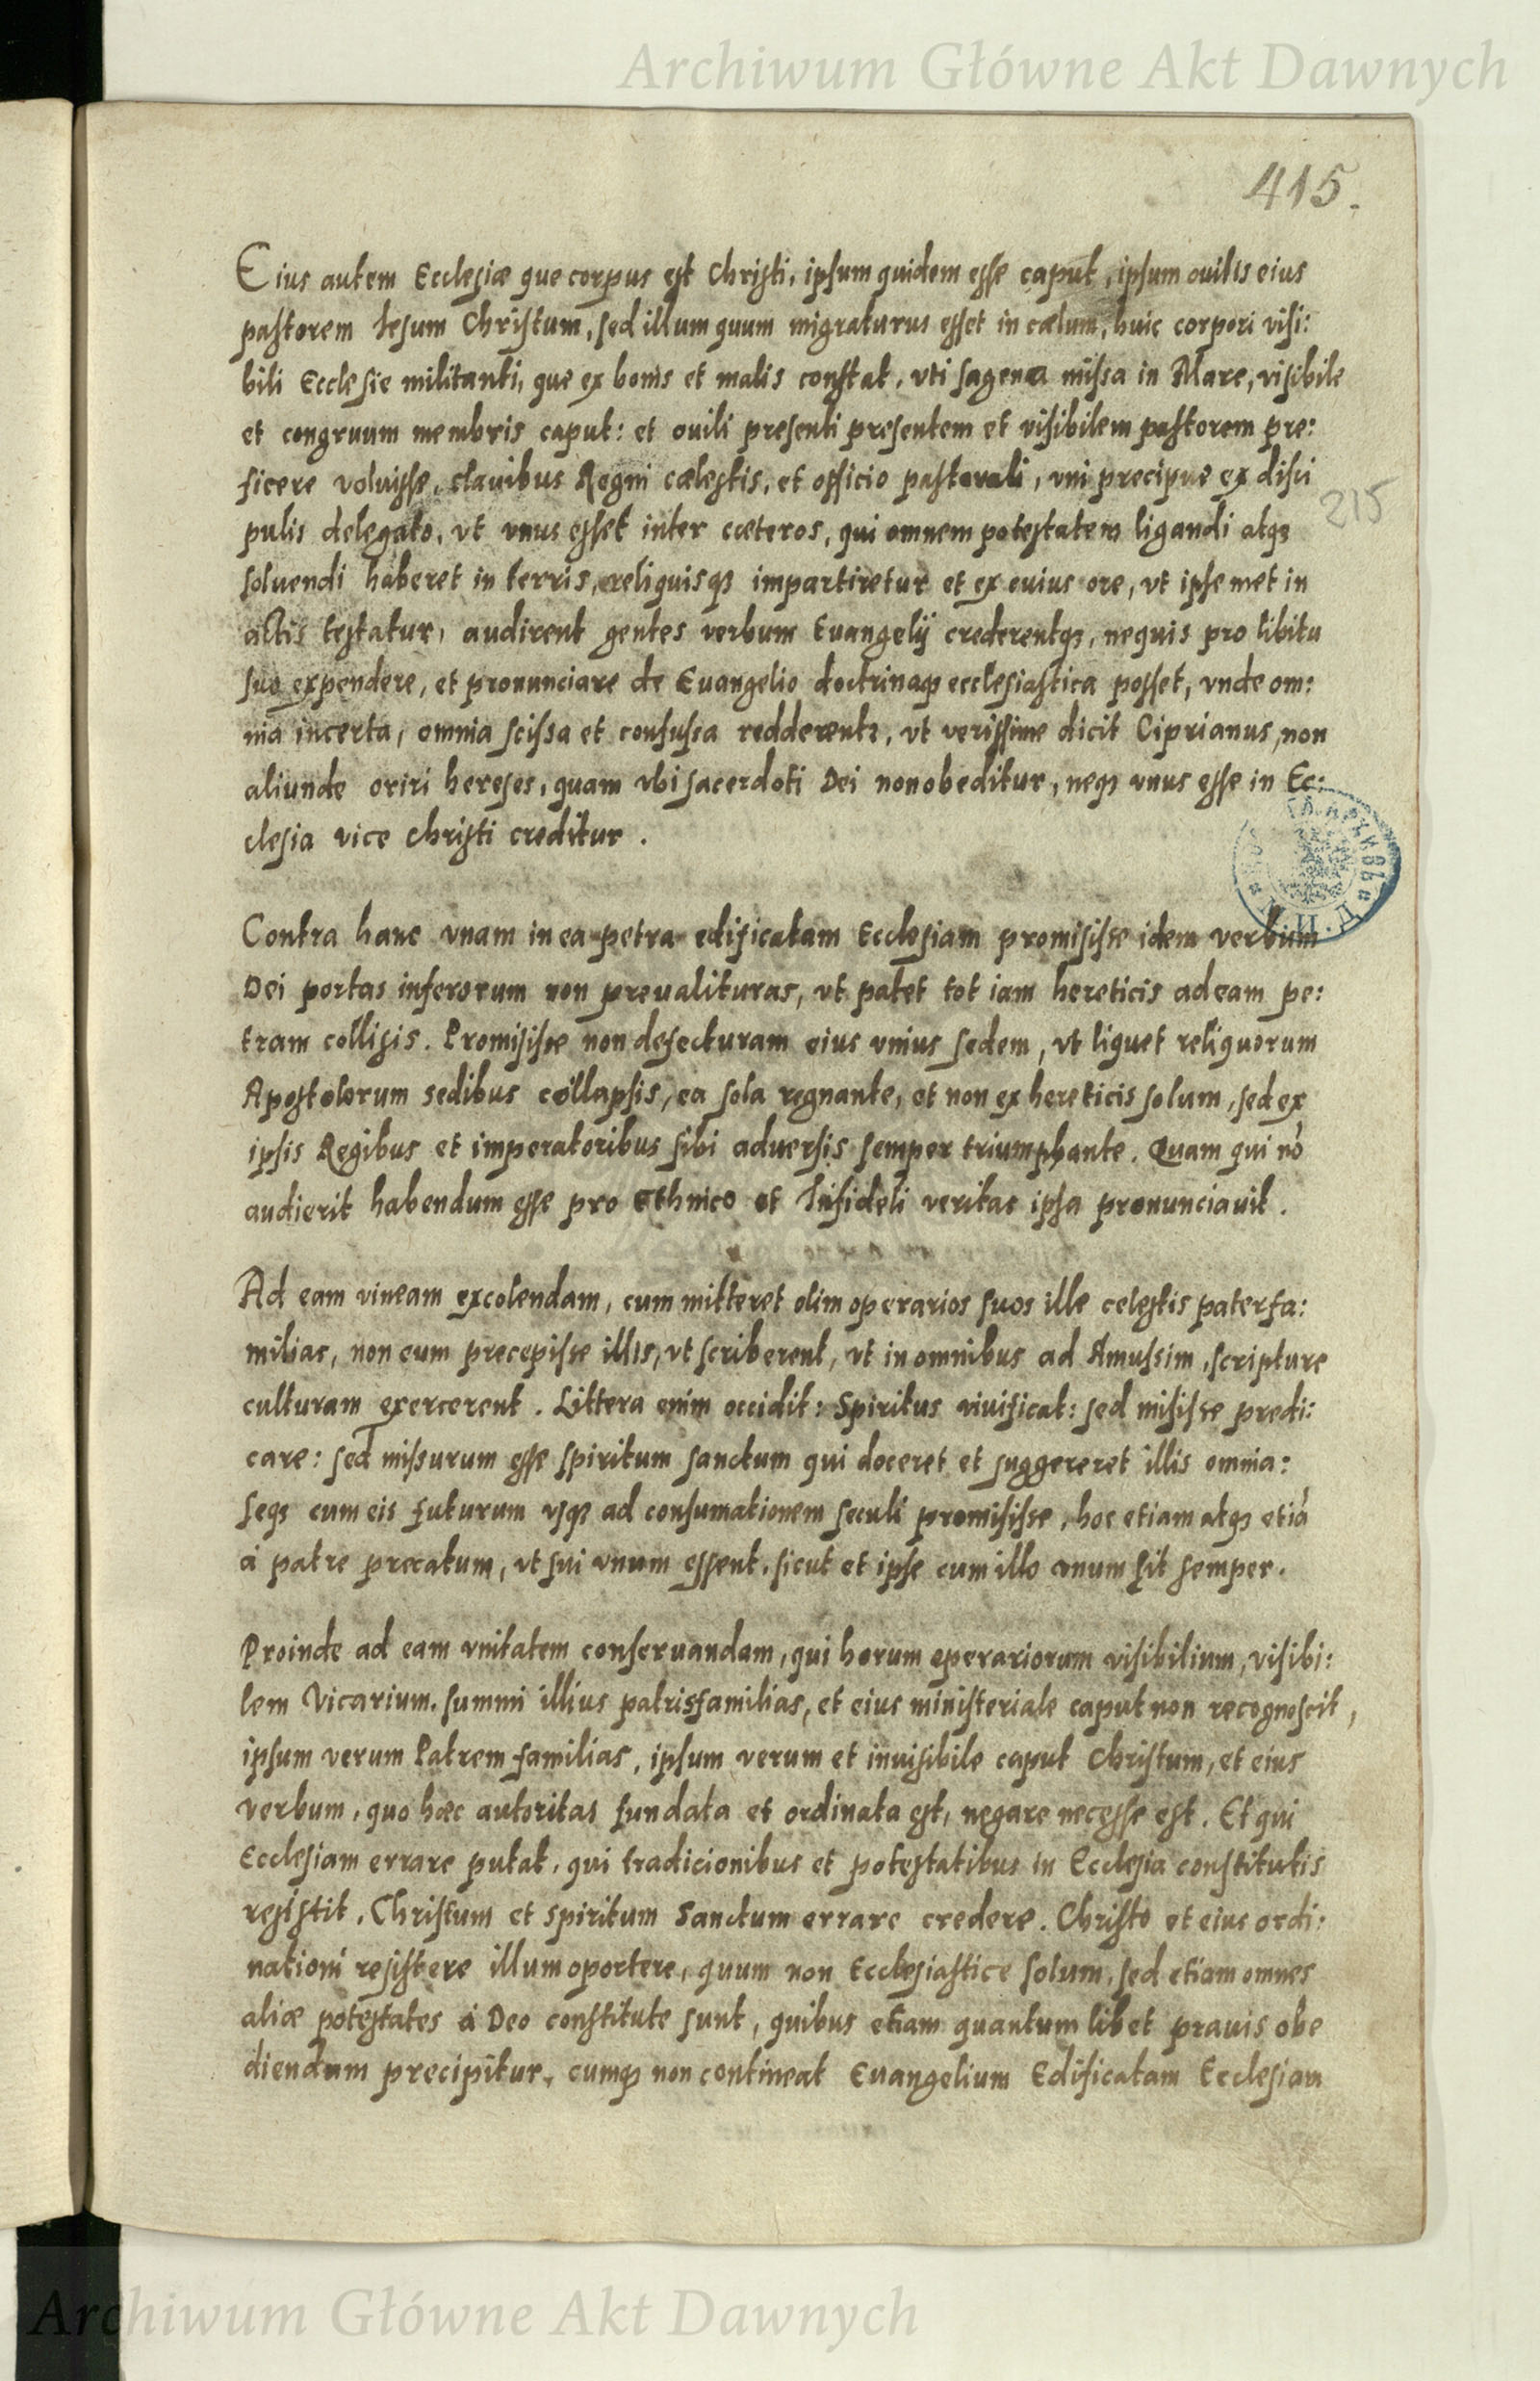 Archiwum Główne Akt Dawnych
415.
Eius autem Ecclesiæ que corpus est Christi, ipsum quidem esse caput, ipsum ouilis eius
pastorem Iesum Christum, sed illum quum migraturus esset in cælum, huic corpori visi:
bili Ecclesie militanti, que ex bonis et malis constat, vti sagena missa in Mare, visibile
et congruum membris caput: et ouili presenti presentem et visibilem pastorem pre:
ficere voluisse, clauibus Regni cælestis, et officio pastorali, vni precipue ex disci
215
pulis delegato, vt vnus esset inter cæteros, qui omnem potestatem ligandi atqꝫ
soluendi haberet in terris, reliquisqꝫ impartiretur et ex cuius ore, vt ipse met in
actis testatur, audirent gentes verbum Euangelij crederentqꝫ, nequis pro libitu
suo expendere, et pronunciare de Euangelio doctrinaqꝫ ecclesiastica posset, vnde om:
nia incerta, omnia scissa et confussa redderentꝛ, vt verissime dicit Ciprianus, non
aliunde oriri hereses, quam vbi sacerdoti Dei non obeditur, neqꝫ vnus esse in Ec:
clesia vice Christi creditur.
Contra hanc vnam in ea petra edificatam Ecclesiam promisisse idem verbum
Dei portas inferorum non preualituras, vt patet tot iam hereticis ad eam pe:
tram collisis. Promisisse non defecturam eius vnius sedem, vt liquet reliquorum
Apostolorum sedibus collapsis, ea sola regnante, et non ex hereticis solum, sed ex
ipsis Regibus et imperatoribus sibi aduersis semper triumphante. Quam qui nō
audierit habendum esse pro Ethnico et Infideli veritas ipsa pronunciauit.
Ad eam vineam excolendam, cum mitteret olim operarios suos ille celestis paterfa:
milias, non eum precepisse illis, vt scriberent, vt in omnibus ad Amussim, scripture
culturam exercerent. Littera enim occidit: Spiritus viuificat: sed misisse predi:
care: sed missurum esse spiritum sanctum qui doceret et suggereret illis omnia:
seqꝫ cum eis futurum vsqꝫ ad consumationem seculi promisisse, hoc etiam atqꝫ etiā
á patre precatum, vt sui vnum essent, sicut et ipse cum illo vnum sit semper.
Proinde ad eam vnitatem conseruandam, qui horum operariorum visibilium, visibi:
lem Vicarium summi illius patrisfamilias, et eius ministeriale caput non recognoscit,
ipsum verum Patrem familias, ipsum verum et inuisibile caput Christum, et eius
verbum, quo hæc autoritas fundata et ordinata est, negare necesse est. Et qui
Ecclesiam errare putat, qui tradicionibus et potestatibus in Ecclesia constitutis
resistit, Christum et spiritum Sanctum errare credere. Christo et eius ordi:
nationi resistere illum oportere, quum non Ecclesiastice solum, sed etiam omnes
aliæ potestates á Deo constitute sunt, quibus etiam quantum libet prauis obe
diendum precipitur, cumqꝫ non contineat Euangelium Edificatam Ecclesiam
Archiwum Główne Akt Dawnych